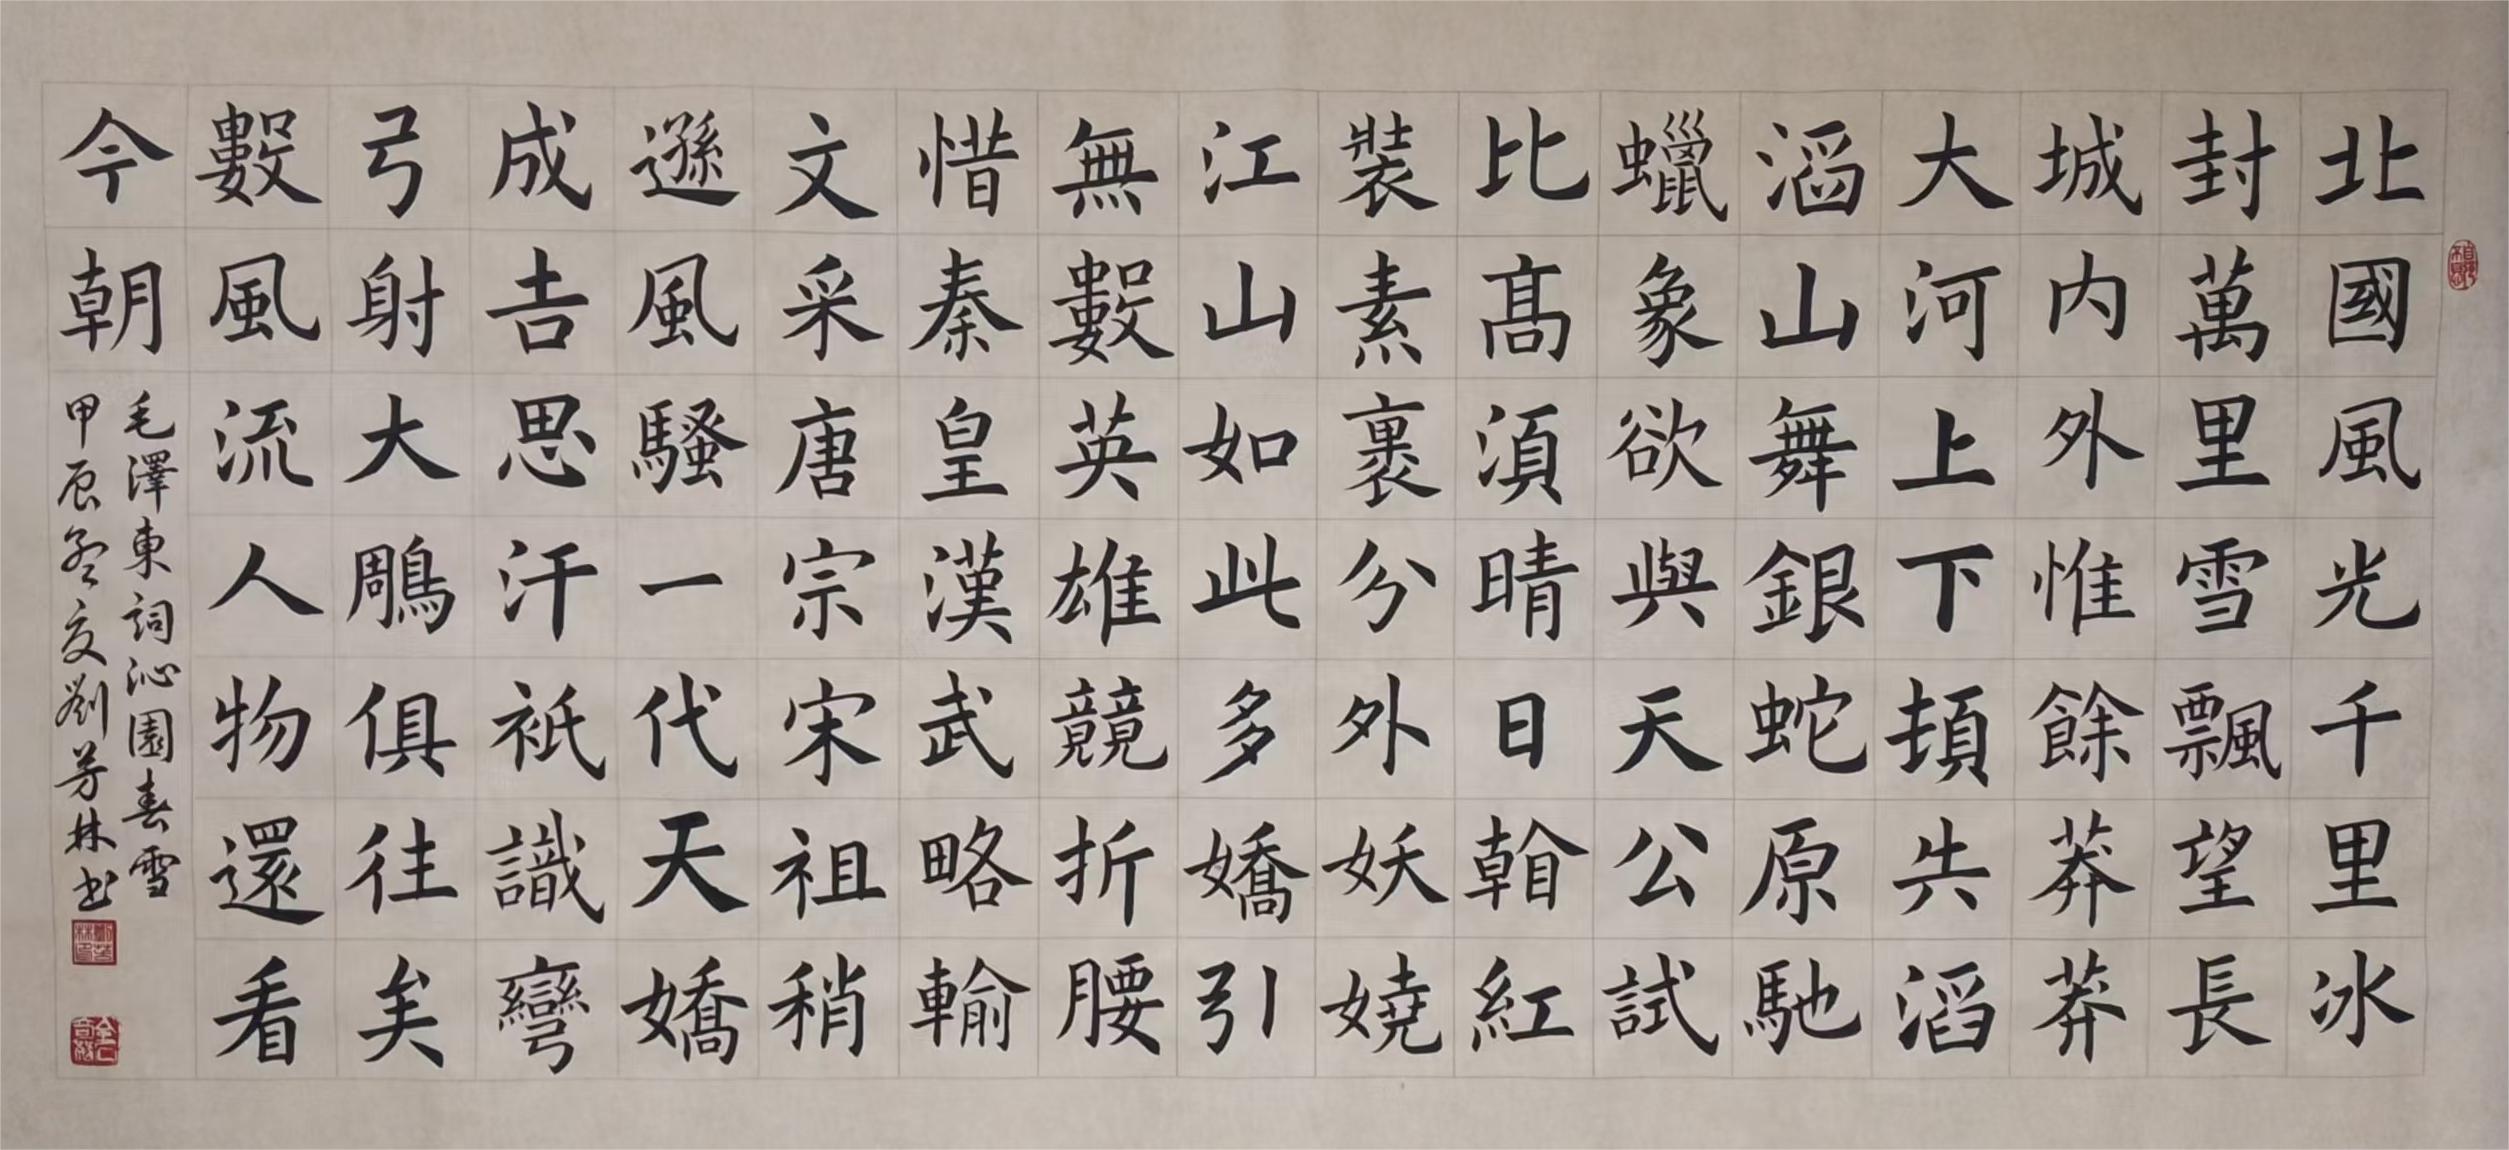 北國風光千里冰
封萬里雪飄望長
城内外惟餘莽莽
大河上下頓失滔
滔山舞銀蛇原馳
蠟象欲與天公試
比髙湏晴日看紅
裝素裹分外妖嬈
江山如此多嬌引
無數英雄競折腰
惜秦皇漢武略輸
文采唐宗宋祖稍
遜風騷一代天嬌
成吉思汗衹識彎
弓射大鵰俱往矣
數風流人物還看
今朝
毛澤東詞沁園春雪
甲辰孟夏劉芳林书